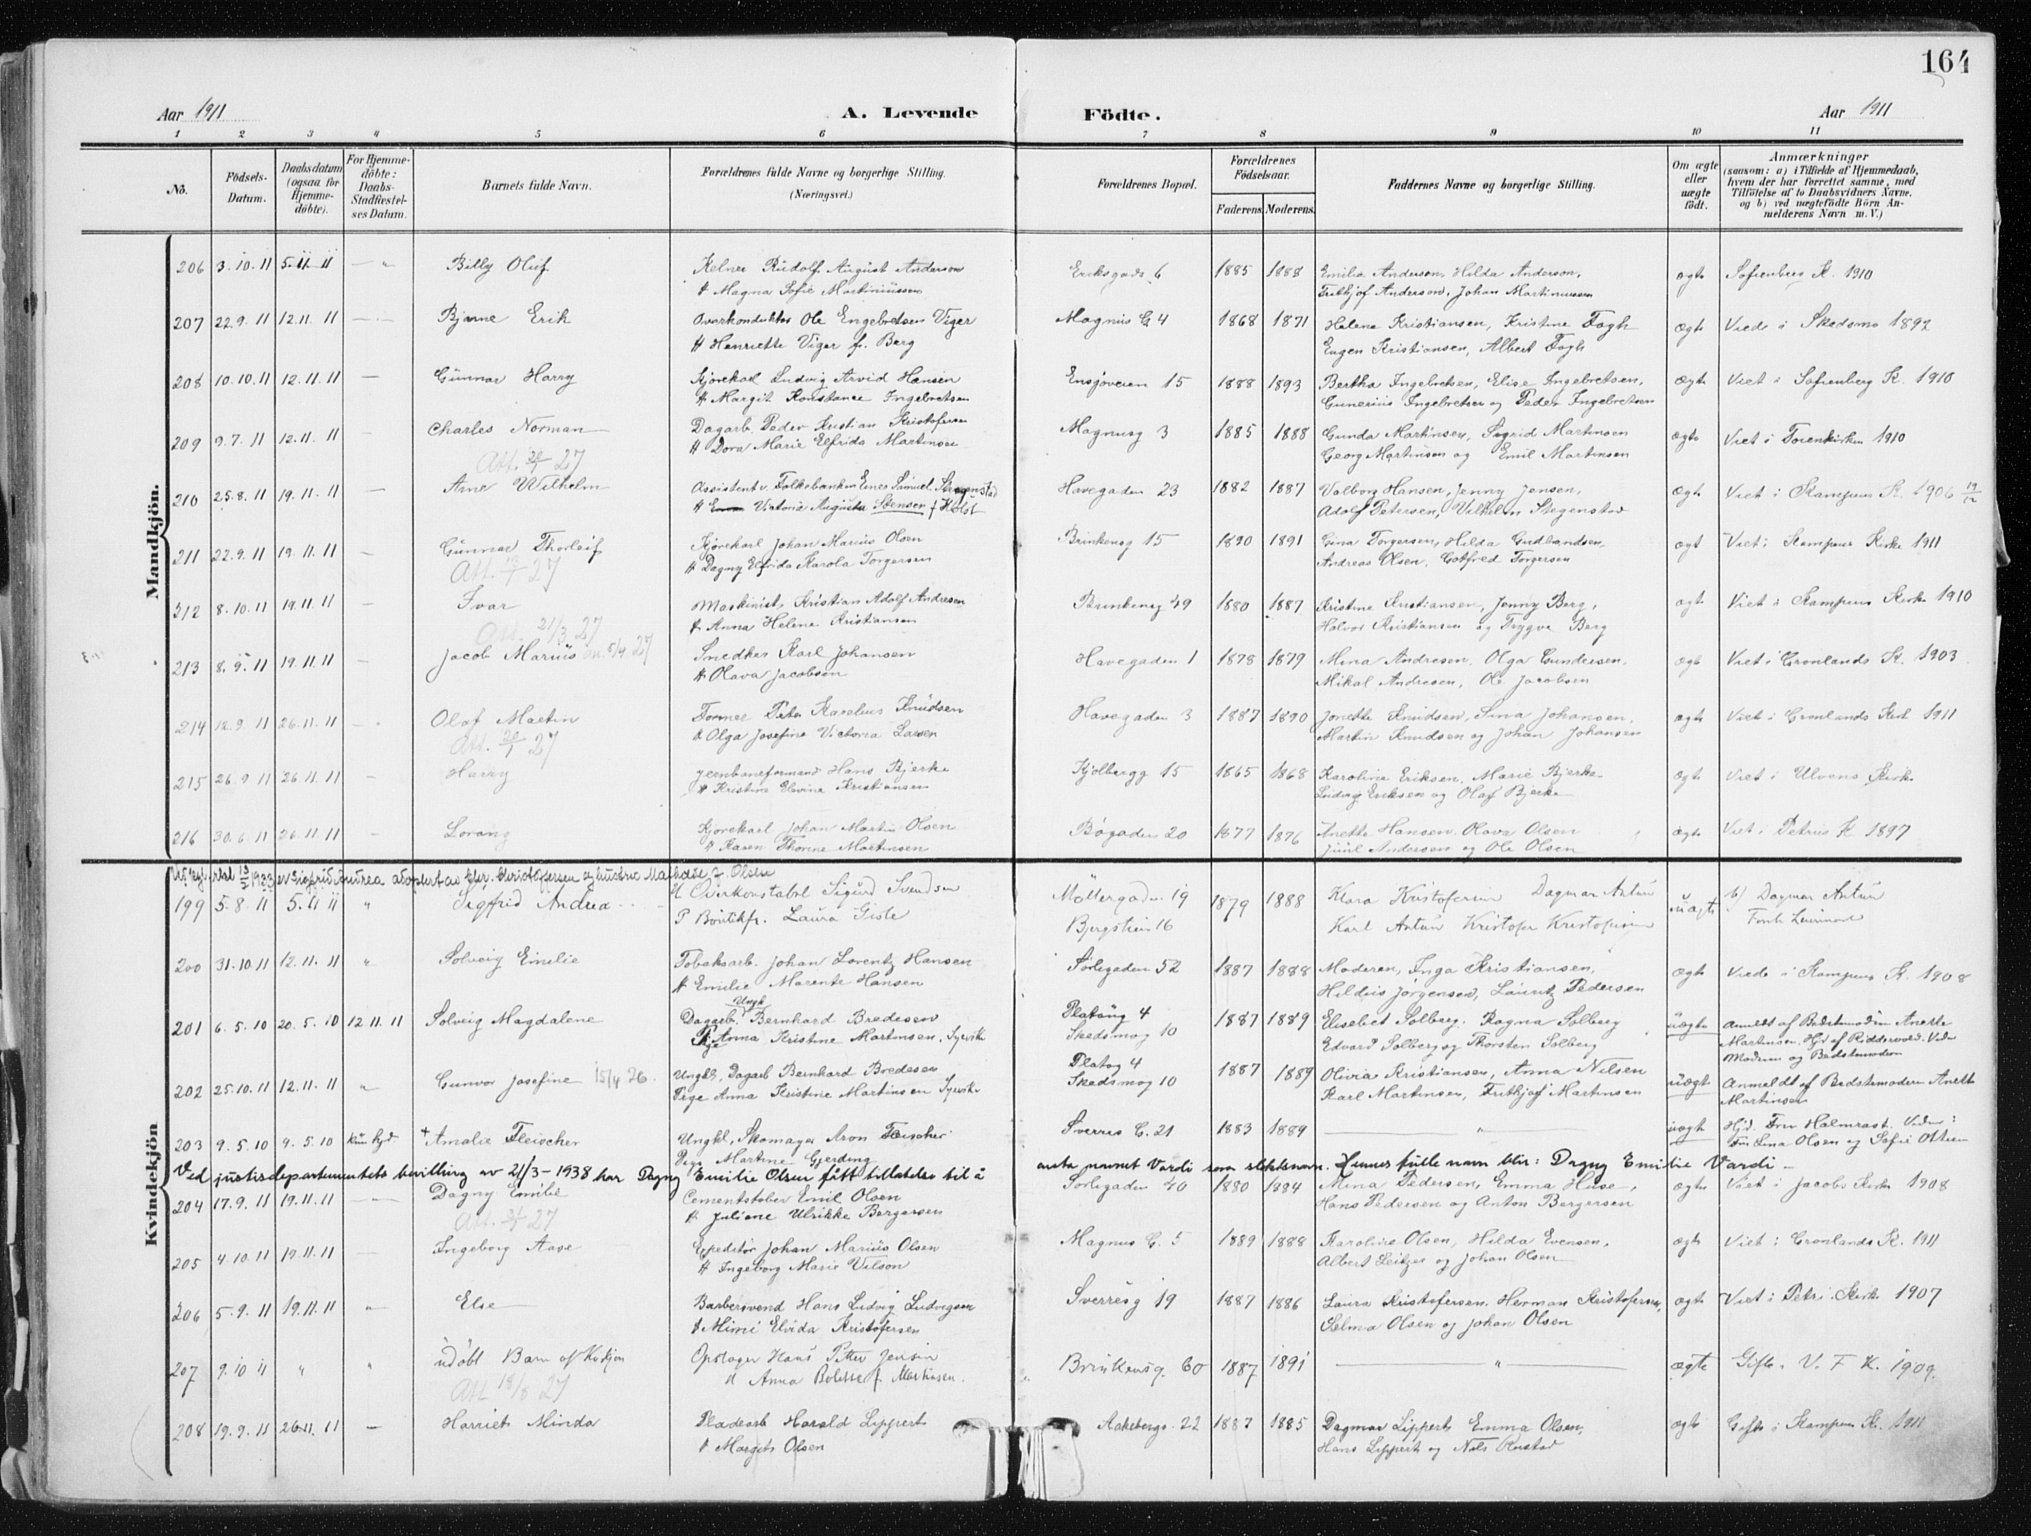 164
Aar 1911 A. Levende Födte. Aar 1911
1 2 3 4 5 6 7 8 9 10 11
No. Födsels-Datum. Daabsdatum (ogsaa for Hjemmedöbte). For Hjemmedöbte: Daabs-Stadfæstelses Datum. Barnets fulde Navn. Forældrenes fulde Navne og borgerlige Stilling. (Næringsvei.) Forældrenes Bopæl. Forældrenes Födselsaar. Faderens Moderens Faddernes Navne og borgerlige Stilling. Om ægte eller uægte födt. Anmærkninger (saasom: a) i Tilfælde af Hjemmedaab, hvem der har forrettet samme, med Tilföielse af to Daabsvidners Navne, og b) ved uægtefödte Börn Anmelderens Navn m. V.)
Mandkjön.
206 3.10.11 5.11.11 — " Billy Oluf Kelner Rudolf August Anderson Eriksgads 6 1885 1888 Emilie Anderson, Hilda Anderson, ægte Sofienberg K. 1910
H Magna Sofie Martiniussen Frithjof Anderson, Johan Martinussen
207 22.9.11 12.11.11 — Bjarne Erik Overkonduktør Ole Engebretsen Viger Magnus G 4 1868 1871 Helene Kristiansen, Kristine Fagh ægte Viede i Skedsmo 1892
H Henriette Viger f. Berg Eugen Kristiansen, Albert Fagh
208 10.10.11 12.11.11 — Gunnar Harry Kjørekarl Ludvig Arvid Hansen Ensjøveien 15 1888 1893 Bertha Ingebretsen, Elise Ingebretsen, ægte Viet i Sofienberg K. 1910
H Margit Konstance Ingebretsen Gunerius Ingebretsen og Peder Ingebretsen
209 9.7.11 12.11.11 — Charles Norman Dagarb. Peder Kristian Kristofersen Magnusg 3 1885 1888 Gunda Martinsen, Sigrid Martinsen ægte Viet i Toienkirken 1910
H Dora Marie Elfrida Martinsen Georg Martinsen og Emil Martinsen
Att. 27
210 25.8.11 19.11.11 — Arne Wilhelm Assistent v. Folkebanken Einer Samuel Stegenstad Havegaden 23 1882 1887 Valborg Hansen, Jenny Jensen, ægte Viet i Kampens K. 1906 19/12
H Victoria Augusta Stensen f Holst Adolf Petersen, Vilhelm Stegenstad
211 22.9.11 19.11.11 — Gunnar Thorleif Kjørekarl Johan Marius Olsen Brinkensg 15 1890 1891 Gina Torgersen, Hilda Gudbandsen, ægt Viet i Kampens Kirke 1911
H Dagny Elfrida Karola Torgersen Andreas Olsen, Gotfred Torgersen
Att. 27
312 8.10.11 19.11.11 — Ivar Maskinist, Kristian Adolf Andresen Brinkensg 49 1880 1887 Kristine Kristiansen, Jenny Berg, ægt Viet i Kampens Kirke 1910
H Anna Helene Kristiansen Halvor Kristiansen og Trygve Berg
Att. 21/3 27
213 8.9.11 19.11.11 — Jacob Marius 5/4 27 Snedker Karl Johansen Havegaden 1 1878 1879 Mina Andresen, Olga Gundersen, ægt Viet i Gronlands K. 1903
H Olava Jacobsen Mikal Andresen, Ole Jacobsen
214 12.9.11 26.11.11 Olaf Martin Former Peter Karelius Knudsen Havegaden 3 1887 1890 Jonette Knudsen, Sina Johansen, ægt Viet i Gronlands Kirk 1911
H Olga Josefine Victoria Larsen Martin Knudsen og Johan Johansen
Att. 27
215 26.9.11 26.11.11 — Harry Jernbaneformand Hans Bjerke Kjølbergg 15 1865 1868 Karoline Eriksen, Marie Bjerke ægt Viet i Ulvens Kirke
H Kristine Elevine Kristiansen Ludvig Eriksen og Olaf Bjerke
216 30.6.11 26.11.11 — Lorang Kjørekarl Johan Martin Olsen Bøgaden 20 1877 1876 Anette Hansen, Olava Olsen ægt Viet i Petrus K 1897
H Karen Thorine Martinsen Juul Andersen og Ole Olsen
Kvindekjön
1933 er Sigfrid Andrea adoptert av Chr. Christoffersen og hustru Mathilde f. Olsen
199 5.8.11 5.11.11 " Sigfrid Andrea U Overkonstabel Sigurd Svendsen Möllergaden 19 1879 1888 Klara Kristofersen Dagmar Antun uægte b) Dagmar Antun
P Butikfr. Laura Gisle Bjergstien 16 Karl Antun Kristofer Kristofersen
200 31.10.11 12.11.11 " Solveig Emilie Tobaksarb. Johan Lorentz Hansen Sörligaden 52 1887 1888 Moderen, Inga Kristiansen, ægte Viede i Kampens K. 1908
H Emilie Marente Hansen Hildus Jørgensen, Lauritz Pedersen
201 6.5.10 20.5.10 12.11.11 Solveig Magdalene Ungk Dagarb. Bernhard Bredesen Platoug 4 1887 1889 Elisebet Solberg. Ragna Solberg uægte Anmeldt af Bedstemodern Anette
Pige Anna Kristine Martinsen, Syerske Skedsmog 10 Edvard Solberg og Thorsten Solberg Martinsen. Hjd af Riddervold. Vidner Moderen og Bedstemodern
202 25.10.11 12.11.11 " Gunvor Josefine 15/4 26. Ungkl, Dagarb Bernhard Bredesen Platog 4 1887 1889 Olivia Kristiansen, Anna Nilsen uægte Anmeldt af Bedstemodern Anette
Pige Anna Kristine Martinsen Syerske Skedsmog 10 Karl Martinsen, Frithjof Martinsen Martinsen
203 9.5.10 9.5.10 kun hjd + Amalie Fleischer Ungkl, Skomager Aron Fleischer Sverres G. 21 1883 1889 — " — uægt Hjd. Fru Halmrast. Vidner:
Pige Martine Gjerding Fru Lina Olsen og Sofie Olsen
Ved justisdepartementets bevilling av 21/3-1938 har Dagny Emilie Olsen fått tillatelse til å anta navnet Vardi som slektsnavn. Hennes fulle navn blir: Dagny Emilie Vardi —
204 17.9.11 19.11.11 — Dagny Emilie Cementstøber Emil Olsen Sorligaden 40 1880 1884 Mina Pedersen, Emma Huse, ægte Viet i Jacobs Kirke 1908
H Juliane Ulrikke Bergersen Hans Pedersen og Anton Bergersen
Att. 27
205 4.10.11 19.11.11 — Ingeborg Aase Expeditør Johan Marius Olsen Magnus G. 5 1889 1888 Karoline Olsen, Hilda Evensen, ægte Viet i Gronlands K. 1911
H Ingeborg Marie Vilson Albert Leitzes og Johan Olsen
206 5.9.11 19.11.11 " Else Barbersvend Hans Ludvig Ludvigsen Sverresg 19 1887 1886 Laura Kristofersen, Herman Kristofersen, ægte Viet i Petri Kirke 1907
H Mimi Elvida Kristofersen Selma Olsen og Johan Olsen
207 9.10 11 " " udøbt Barn af Kvkjøn Opstager Hans Petter Jensen Brinkensg. 60 1887 1891 — " — ægte Gifte. V. F. K. 1909
H Anna Bolette f. Martinsen.
Att 18/8 27
208 19.9.11 26.11.11 — Harriet Minda Pladearb Harald Lippert Aakebergv. 22 1887 1885 Dagmar Lippert Emma Olsen, ægt Gifte i Kampens K. 1911
H Margith Olsen Hans Lippert og Nils Rustad